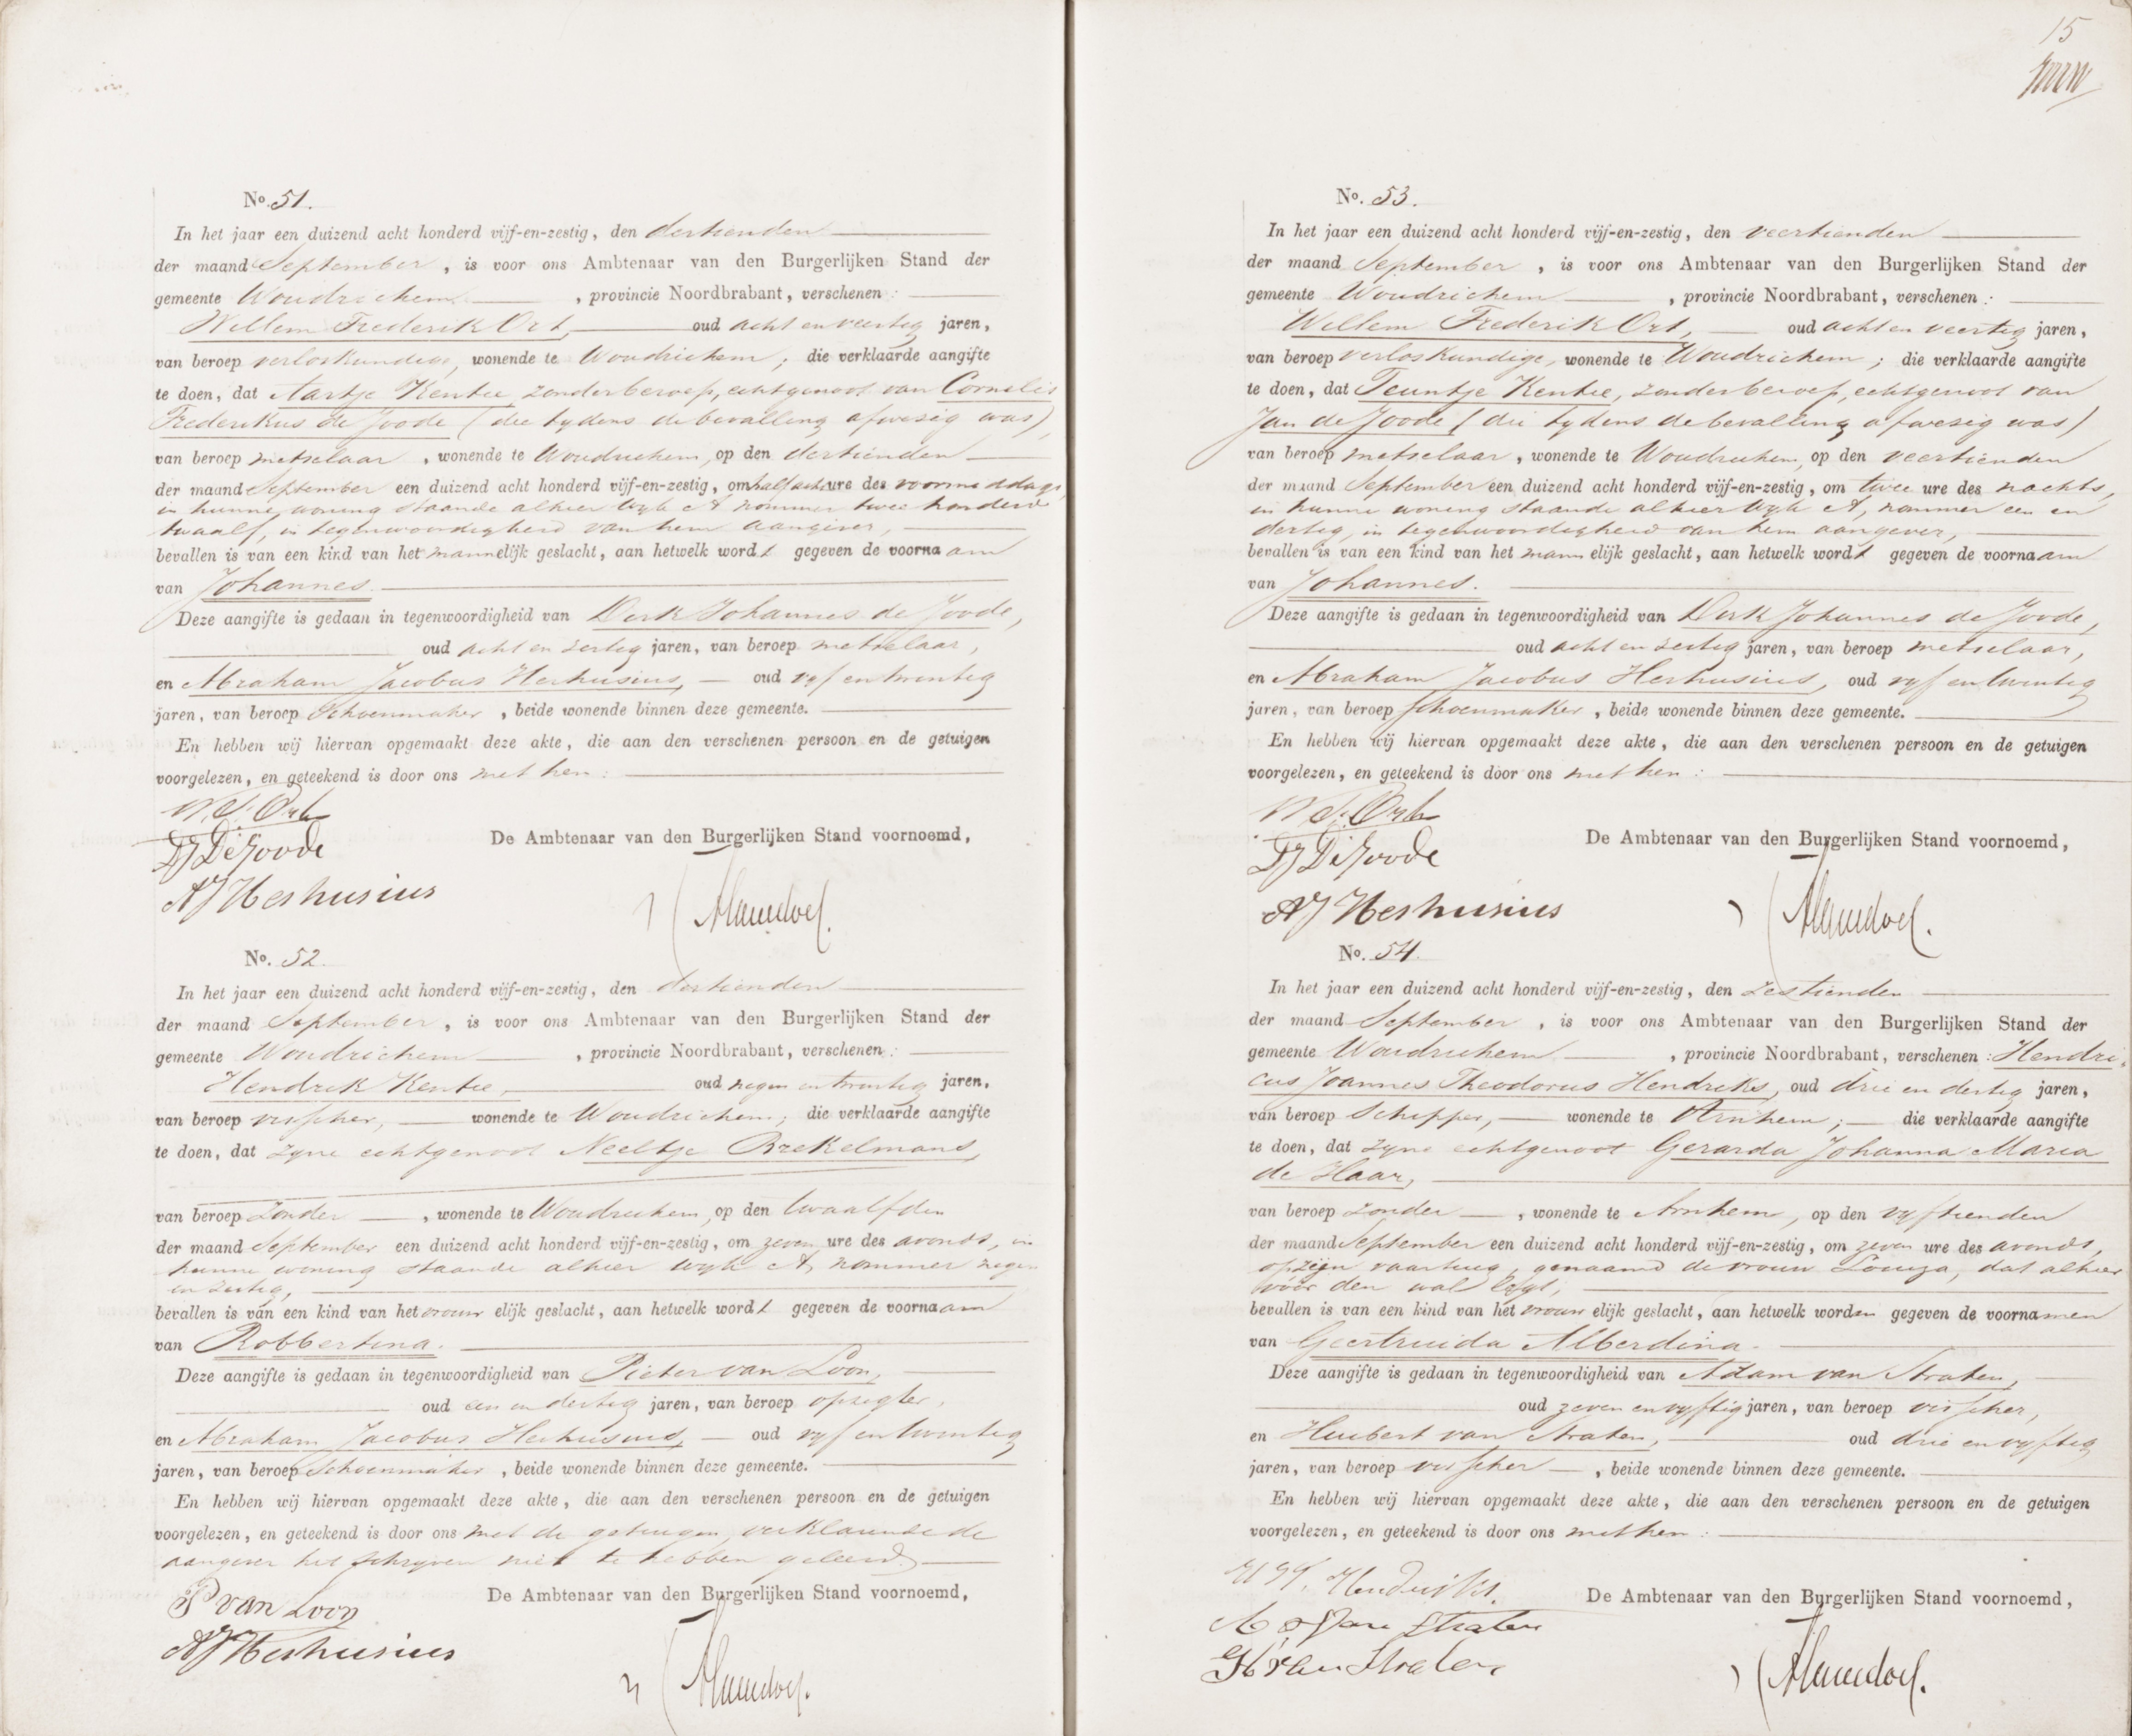 No. 51.
In het jaar een duizend acht honderd vijf-en-zestig, den dertienden
der maand September, is voor ons Ambtenaar van den Burgerlijken Stand der
gemeente Woudrichem, provincie Noordbrabant, verschenen:
Willem Frederik Ort, oud acht en veertig jaren,
van beroep verloskundige, wonende te Woudrichem; die verklaarde aangifte
te doen, dat Aartje Kentie, zonder beroep, echtgenoot van Cornelis
Frederikus de Joode (die tydens de bevalling afwezig was),
van beroep metselaar, wonende te Woudrichem, op den dertienden
der maand September een duizend acht honderd vijf-en-zestig, om half acht ure des voormiddags,
in hunne woning staande alhier wyk A nommer twee honderd
twaalf, in tegenwoordigheid van hem aangever,
bevallen is van een kind van het mannelijk geslacht, aan hetwelk wordt gegeven de voornaam
van Johannes.
Deze aangifte is gedaan in tegenwoordigheid van Derk Johannes de Joode,
oud acht en zestig jaren, van beroep metselaar,
en Abraham Jacobus Heshusius, oud vyf en twintig
jaren, van beroep Schoenmaker, beide wonende binnen deze gemeente.
En hebben wij hiervan opgemaakt deze akte, die aan den verschenen persoon en de getuigen
voorgelezen, en geteekend is door ons met hen:
W. F. Ort
DJ De Joode
De Ambtenaar van den Burgerlijken Stand voornoemd,
AJ Heshusius
No. 52.
In het jaar een duizend acht honderd vijf-en-zestig, den dertienden
der maand September, is voor ons Ambtenaar van den Burgerlijken Stand der
gemeente Woudrichem, provincie Noordbrabant, verschenen:
Hendrik Kentie, oud negen en twintig jaren,
van beroep visscher, wonende te Woudrichem; die verklaarde aangifte
te doen, dat zyne echtgenoot Neeltje Brekelmans,
van beroep zonder, wonende te Woudrichem, op den twaalfden
der maand September een duizend acht honderd vijf-en-zestig, om zeven ure des avonds, in
hunne woning staande alhier wyk A, nommer negen
en zestig,
bevallen is van een kind van het vrouwelijk geslacht, aan hetwelk wordt gegeven de voornaam
van Robbertina.
Deze aangifte is gedaan in tegenwoordigheid van Pieter van Loon,
oud een en dertig jaren, van beroep opzigter,
en Abraham Jacobus Heshusius, oud vyf en twintig
jaren, van beroep Schoenmaker, beide wonende binnen deze gemeente.
En hebben wij hiervan opgemaakt deze akte, die aan den verschenen persoon en de getuigen
voorgelezen, en geteekend is door ons met de getuigen, verklarende de
aangever het schryven niet te hebben geleerd.
P van Loon
De Ambtenaar van den Burgerlijken Stand voornoemd,
AJ Heshusius
15
No. 53.
In het jaar een duizend acht honderd vijf-en-zestig, den veertienden
der maand September, is voor ons Ambtenaar van den Burgerlijken Stand der
gemeente Woudrichem, provincie Noordbrabant, verschenen:
Willem Frederik Ort, oud acht en veertig jaren,
van beroep verloskundige, wonende te Woudrichem; die verklaarde aangifte
te doen, dat Teuntje Kentie, zonder beroep, echtgenoot van
Jan de Joode (die tydens de bevalling afwezig was)
van beroep metselaar, wonende te Woudrichem, op den veertienden
der maand September een duizend acht honderd vijf-en-zestig, om twee ure des nachts,
in hunne woning staande alhier wyk A, nommer een en
dertig, in tegenwoordigheid van hem aangever,
bevallen is van een kind van het mannelijk geslacht, aan hetwelk wordt gegeven de voornaam
van Johannes.
Deze aangifte is gedaan in tegenwoordigheid van Derk Johannes de Joode,
oud acht en zestig jaren, van beroep metselaar,
en Abraham Jacobus Heshusius, oud vyf en twintig
jaren, van beroep schoenmaker, beide wonende binnen deze gemeente.
En hebben wij hiervan opgemaakt deze akte, die aan den verschenen persoon en de getuigen
voorgelezen, en geteekend is door ons met hen:
W. F. Ort
DJ De Joode
De Ambtenaar van den Burgerlijken Stand voornoemd,
AJ Heshusius
No. 54.
In het jaar een duizend acht honderd vijf-en-zestig, den zestienden
der maand September, is voor ons Ambtenaar van den Burgerlijken Stand der
gemeente Woudrichem, provincie Noordbrabant, verschenen: Hendri-
cus Joannes Theodorus Hendriks, oud drie en dertig jaren,
van beroep Schipper, wonende te Arnhem; die verklaarde aangifte
te doen, dat zyne echtgenoot Gerarda Johanna Maria
de Haar,
van beroep zonder, wonende te Arnhem, op den vyftienden
der maand September een duizend acht honderd vijf-en-zestig, om zeven ure des avonds,
op zijn vaartuig, genaamd de vrouw Louiza, dat alhier
vóór den wal legt,
bevallen is van een kind van het vrouwelijk geslacht, aan hetwelk worden gegeven de voornamen
van Geertruida Alberdina.
Deze aangifte is gedaan in tegenwoordigheid van Adam van Straten,
oud zeven en vyftig jaren, van beroep visscher,
en Huibert van Straten, oud drie en vyftig
jaren, van beroep visscher, beide wonende binnen deze gemeente.
En hebben wij hiervan opgemaakt deze akte, die aan den verschenen persoon en de getuigen
voorgelezen, en geteekend is door ons met hen:
Hendriks.
De Ambtenaar van den Burgerlijken Stand voornoemd,
A van Straten
H van Straten